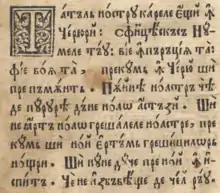 Татъль ностру кареле ещїй ꙟ
Чюрюрй: Сфинцѣскъсѣ Ну
меле тъꙋ: вїе ꙟпърѫцїѧ та
фїе воѧ та, прекумь ꙟ Черю̂ шй
пре пъмѫнть. Пѫинѣ ноастръ чѣ
де пурурѣ дъне ноаѡ астъзй. Шй
не ꙗртъ ноаѡ грешалеле ноастре, пре
кумь шй ной єртъмь грешйцилорь
нощри. Шй ну не дуче пре ной ꙟ и
спйтъ. Че не избъвѣще де чел ръꙋ